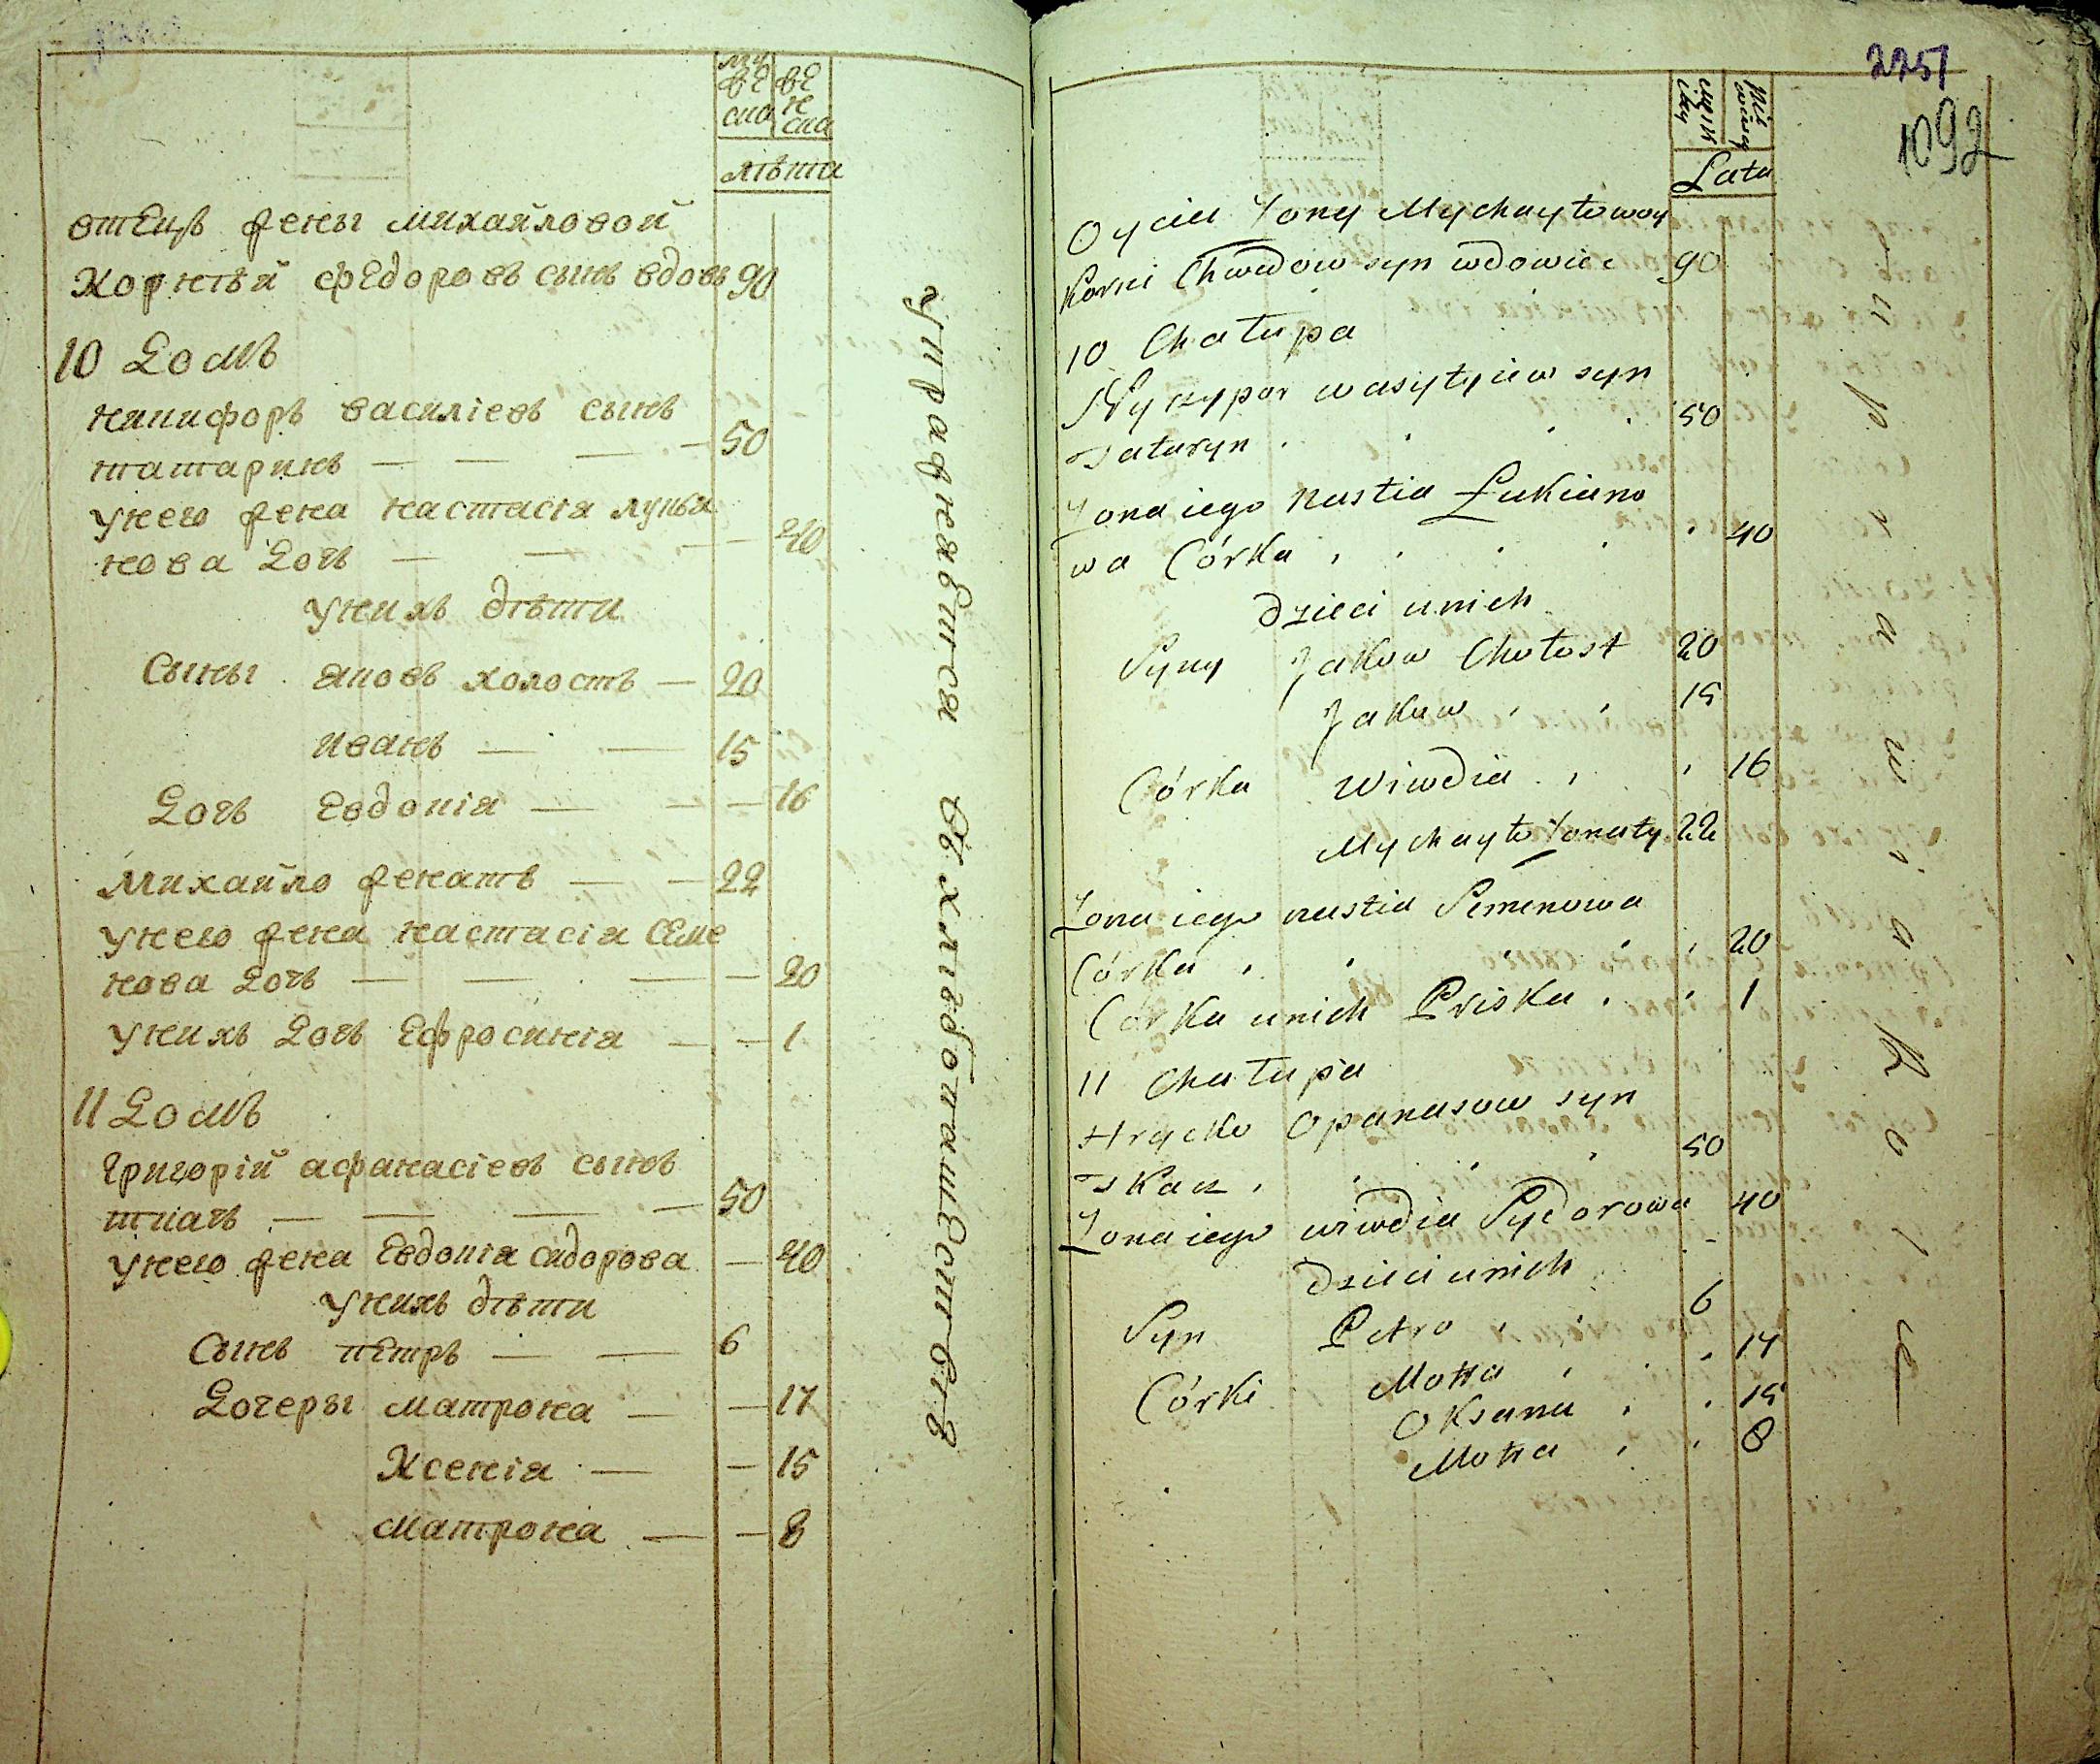 му
же
ска
же
н
ска
лѣта
отецъ жены михайловой
Корнѣй федоровъ сынъ вдовъ 90
10 Домъ
никифоръ василіевъ сынъ
татаринъ — — — — 50
Унего жена настасія лукья
нова дочь — — — 40
Унихъ дѣти
Сыны яковъ холостъ — 20
иванъ — — 15
Дочь Евдокія — — — 16
Михайло женатъ — — 22
Унего жена настасія Семе
нова дочь — — — — 20
Унихъ дочь Ефросинія — — 1
11 Домъ
Григорій афанасіевъ сынъ
ткачь — — — — 50
Унего жена Евдокія сидорова — 40
Унихъ дѣти
Сынъ петръ — — 6
Дочеры матрона — — 17
Ксенія — — 15
матрона — — 8
Упражняются въ хлѣбопашествѣ
2251
1092
Lata
Oyciec Żony Mychayłowoy
Korni Chwedow syn wdowiec 90
10 Chałupa
Nykypor wasylyiew syn
Tataryn 50
Żona iego nastia Łukiano
wa Córka 40
Dzieci unich
Syny Jakow Chołost 20
Jakow 15
Córka Wiwdia 16
Mychayło Żonaty 22
Żona iego nastia Semenowa
Córka 20
Córka unich Priska 1
11 Chałupa
Hrycko Opanasow syn
Tkacz 50
Żona iego wiwdia Sydorowa 40
Dzieci unich
Syn Petro 6
Córki Motra 17
Oksana 15
Motra 8